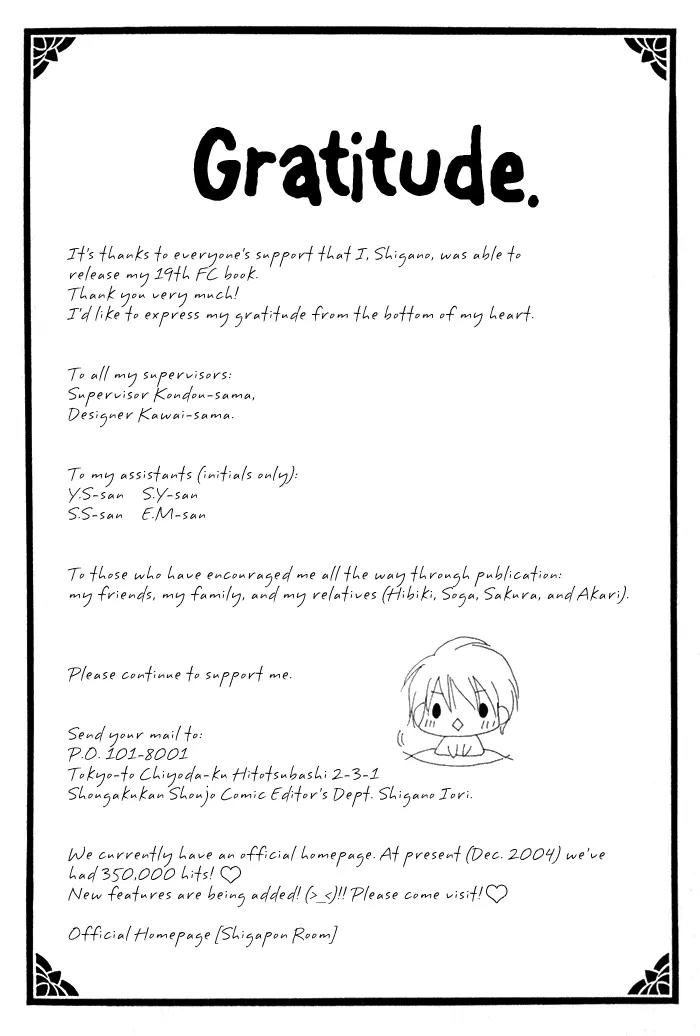 Gratitude.
It's thanks to everyone's support that I, Shigano, was able to
release my 19th FC book.
Thank you very much!
I'd like to express my gratitude from the bottom of my heart.
To all my supervisors:
Supervisor Kondou-sama,
Designer Kawai-sama.
To my assistants (initials only):
Y.S-san S.Y-san
S.S-san E.M-san
To those who have encouraged me all the way through publication:
my friends, my family, and my relatives (Hibiki, Soga, Sakura, and Akari).
Please continue to support me.
Send your mail to:
P.O. 101-8001
Tokyo-to Chiyoda-ku Hitotsubashi 2-3-1
Shougakukan Shoujo Comic Editor's Dept. Shigano Iori.
We currently have an official homepage. At present (Dec. 2004) we've
had 350,000 hits! ♡
New features are being added! (>_<)!! Please come visit! ♡
Official Homepage [Shigapon Room]